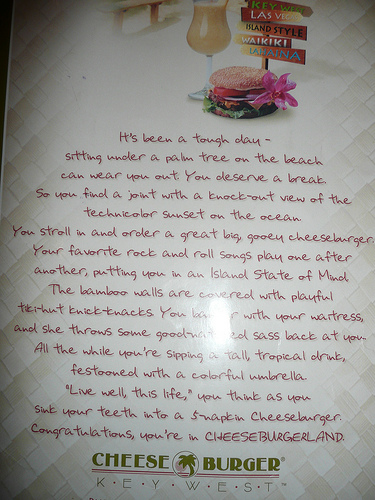 KEY WEST
LAS VE
ISLAND STYLE
WAIKIKI
LAHAINA
It's been a tough day -
sitting under a palm tree on the beach
can wear you out. You deserve a break.
So you find a joint with a knock-out view of the
technicolor sunset on the ocean.
You stroll in and order a great big, gooey cheeseburger.
Your favorite rock and roll songs play one after
another, putting you in an Island State of Mind
The bamboo walls are covered with playful
tiki-hut knick-knacks. You with your waitress,
and she throws some good-natured sass back at you.
All the while you're sipping a tall, tropical drink,
festooned with a colorful umbrella.
"Live well, this life," you think as you
sink your teeth into a 5-napkin Cheeseburger.
Congratulations, you're in CHEESEBURGERLAND.
CHEESE BURGER®
K·E·Y·W·E·S·T